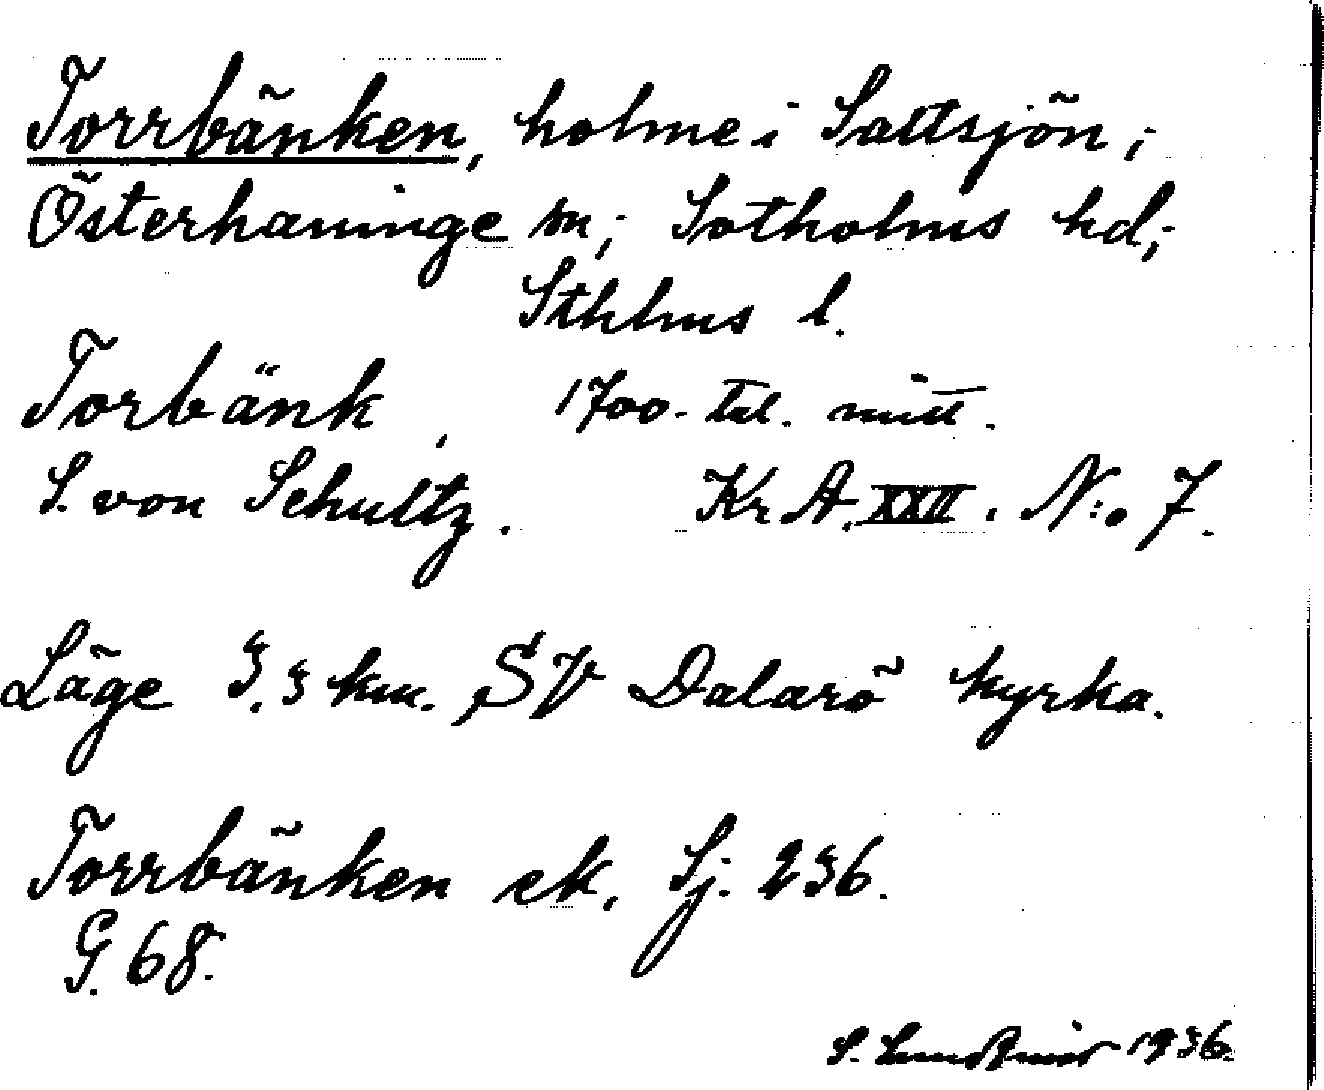 Torrbänken, holme i Saltsjön,;
Österhaninge sn,; Sotholms hd,;
Sthlms l.
Torbänk, 1700-tal. mitt.
S. von Schultz. Kr A. XXII. N:o 7.
Läge 3.3 km. SV Dalarö kyrka.
Torrbänken ek. Sj. 236.
G. 68.
S. 1936.